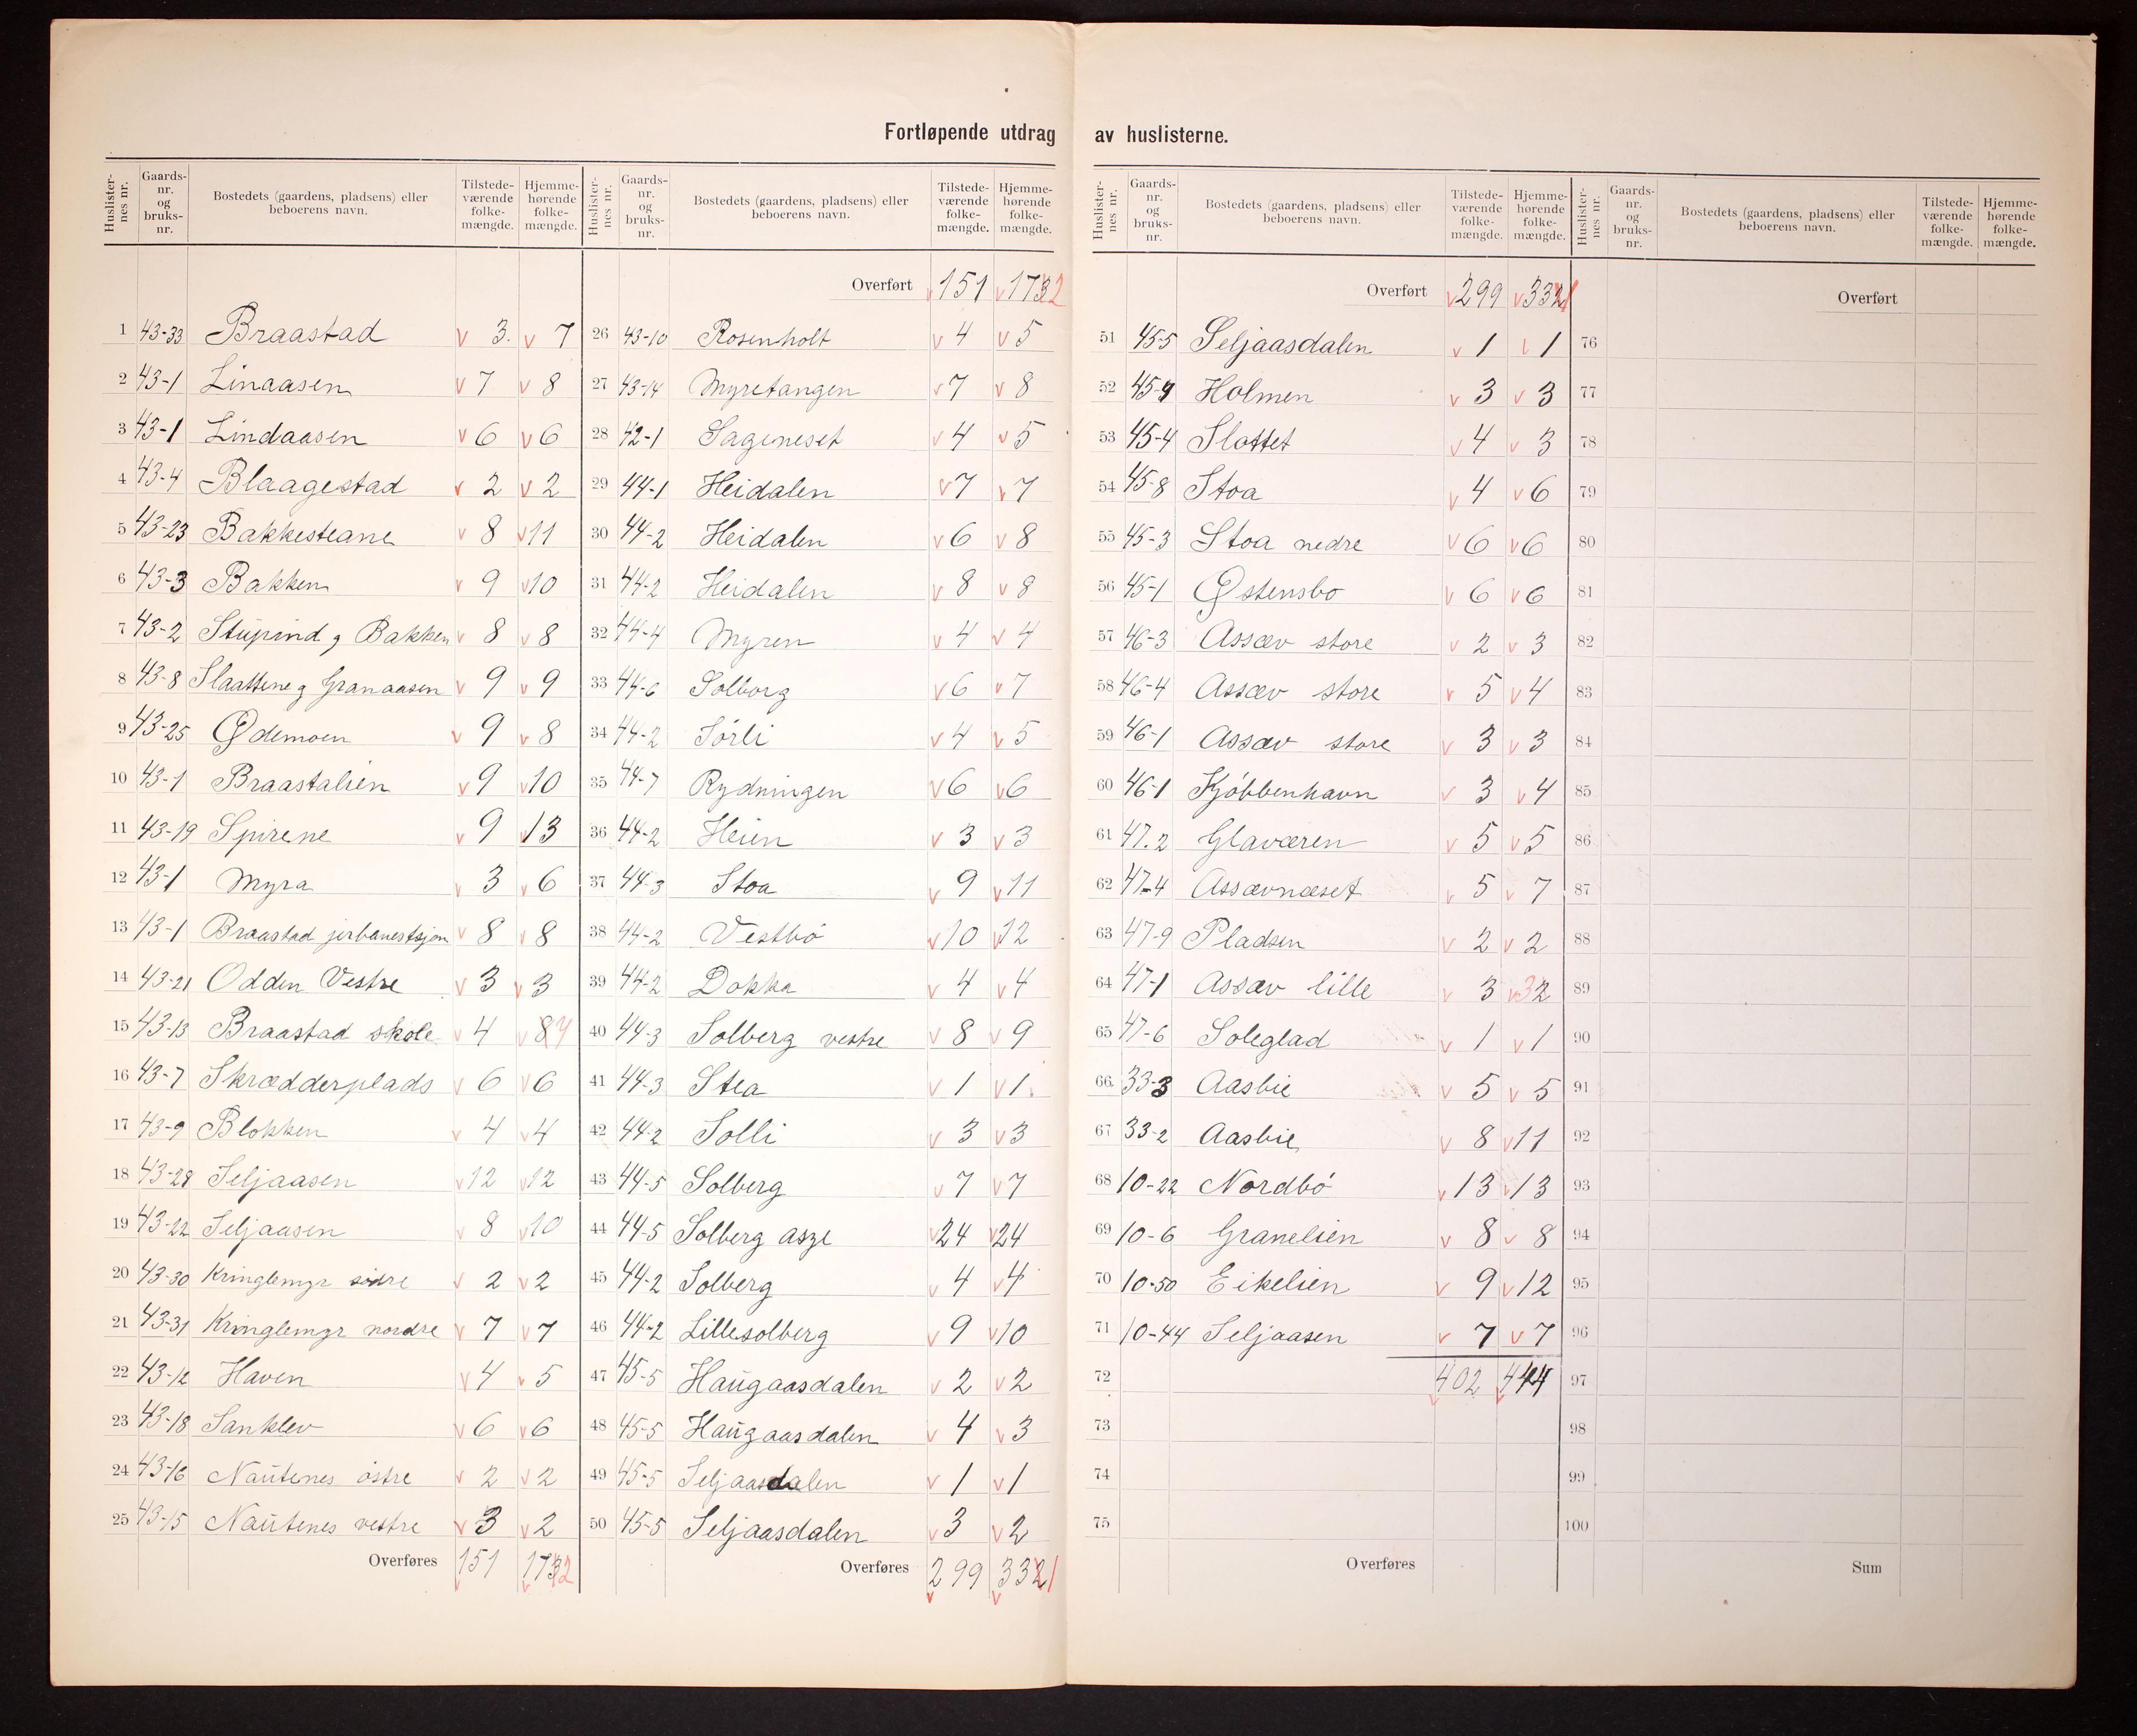 Fortløpende utdrag av huslisterne.
Huslister-nes nr. Gaards-nr. og bruks-nr. Bostedets (gaardens, pladsens) eller beboerens navn. Tilstede-værende folke-mængde. Hjemme-hørende folke-mængde.
1 43-33 Braastad v 3. v 7
2 43-1 Linaasen v 7 v 8
3 43-1 Lindaasen v 6 v 6
4 43-4 Blaagestad v 2 v 2
5 43-23 Bakkesteane v 8 v 11
6 43-3 Bakken v 9 v 10
7 43-2 Stupind og Bakken v 8 v 8
8 43-8 Slaattene og Granaasen v 9 v 9
9 43-25 Ødemoen v 9 v 8
10 43-1 Braastalien v 9 v 10
11 43-19 Spirene v 9 v 13
12 43-1 Myra v 3 v 6
13 43-1 Braastad jerbanestsjon v 8 v 8
14 43-21 Odden Vestre v 3 v 3
15 43-13 Braastad skole v 4 v 8 7
16 43-7 Skrædderplads v 6 v 6
17 43-9 Blokken v 4 v 4
18 43-28 Seljaasen v 12 v 12
19 43-22 Seljaasen v 8 v 10
20 43-30 Kringlemyr södre v 2 v 2
21 43-31 Kringlemyr nordre v 7 v 7
22 43-12 Haven v 4 v 5
23 43-18 Sanklev v 6 v 6
24 43-16 Nautenes östre v 2 v 2
25 43-15 Nautenes vestre v 3 v 2
Overføres 151 1732
Huslister-nes nr. Gaards-nr. og bruks-nr. Bostedets (gaardens, pladsens) eller beboerens navn. Tilstede-værende folke-mængde. Hjemme-hørende folke-mængde.
Overført v 151 v 1732
26 43-10 Rosenholt v 4 v 5
27 43-14 Myretangen v 7 v 8
28 42-1 Sageneset v 4 v 5
29 44-1 Heidalen v 7 v 7
30 44-2 Heidalen v 6 v 8
31 44-2 Heidalen v 8 v 8
32 44-4 Myren v 4 v 4
33 44-6 Solborg v 6 v 7
34 44-2 Sörli v 4 v 5
35 44-7 Rydningen v 6 v 6
36 44-2 Heien v 3 v 3
37 44-3 Stoa v 9 v 11
38 44-2 Vestbö v 10 v 12
39 44-2 Dokka v 4 v 4
40 44-3 Solberg vestre v 8 v 9
41 44-3 Stea v 1 v 1
42 44-2 Solli v 3 v 3
43 44-5 Solberg v 7 v 7
44 44-5 Solberg asyl v 24 v 24
45 44-2 Solberg v 4 v 4
46 44-2 Lillesolberg v 9 v 10
47 45-5 Haugaasdalen v 2 v 2
48 45-5 Haugaasdalen v 4 v 3
49 45-5 Seljaasdalen v 1 v 1
50 45-5 Seljaasdalen v 3 v 2
Overføres 299 3321
Huslister-nes nr. Gaards-nr. og bruks-nr. Bostedets (gaardens, pladsens) eller beboerens navn. Tilstede-værende folke-mængde. Hjemme-hørende folke-mængde.
Overført v 299 v 3321
51 45-5 Seljaasdalen v 1 v 1
52 45-9 Holmen v 3 v 3
53 45-4 Slottet v 4 v 3
54 45-8 Stoa v 4 v 6
55 45-3 Stoa nedre v 6 v 6
56 45-1 Østensbo v 6 v 6
57 46-3 Assæv store v 2 v 3
58 46-4 Assæv store v 5 v 4
59 46-1 Assæv store v 3 v 3
60 46-1 Kjöbbenhavn v 3 v 4
61 47.2 Glaværen v 5 v 5
62 47-4 Assævnæset v 5 v 7
63 47-9 Pladsen v 2 v 2
64 47-1 Assæv lille v 3 v 3 2
65 47-6 Soleglad v 1 v 1
66 33-3 Aasbie v 5 v 5
67 33-2 Aasbie v 8 v 11
68 10-22 Nordbö v 13 v 13
69 10-6 Granelien v 8 v 8
70 10-50 Eikelien v 9 v 12
71 10-44 Seljaasen v 7 v 7
72 402 444
73
74
75
Overføres
Huslister-nes nr. Gaards-nr. og bruks-nr. Bostedets (gaardens, pladsens) eller beboerens navn. Tilstede-værende folke-mængde. Hjemme-hørende folke-mængde.
Overført
76
77
78
79
80
81
82
83
84
85
86
87
88
89
90
91
92
93
94
95
96
97
98
99
100
Sum